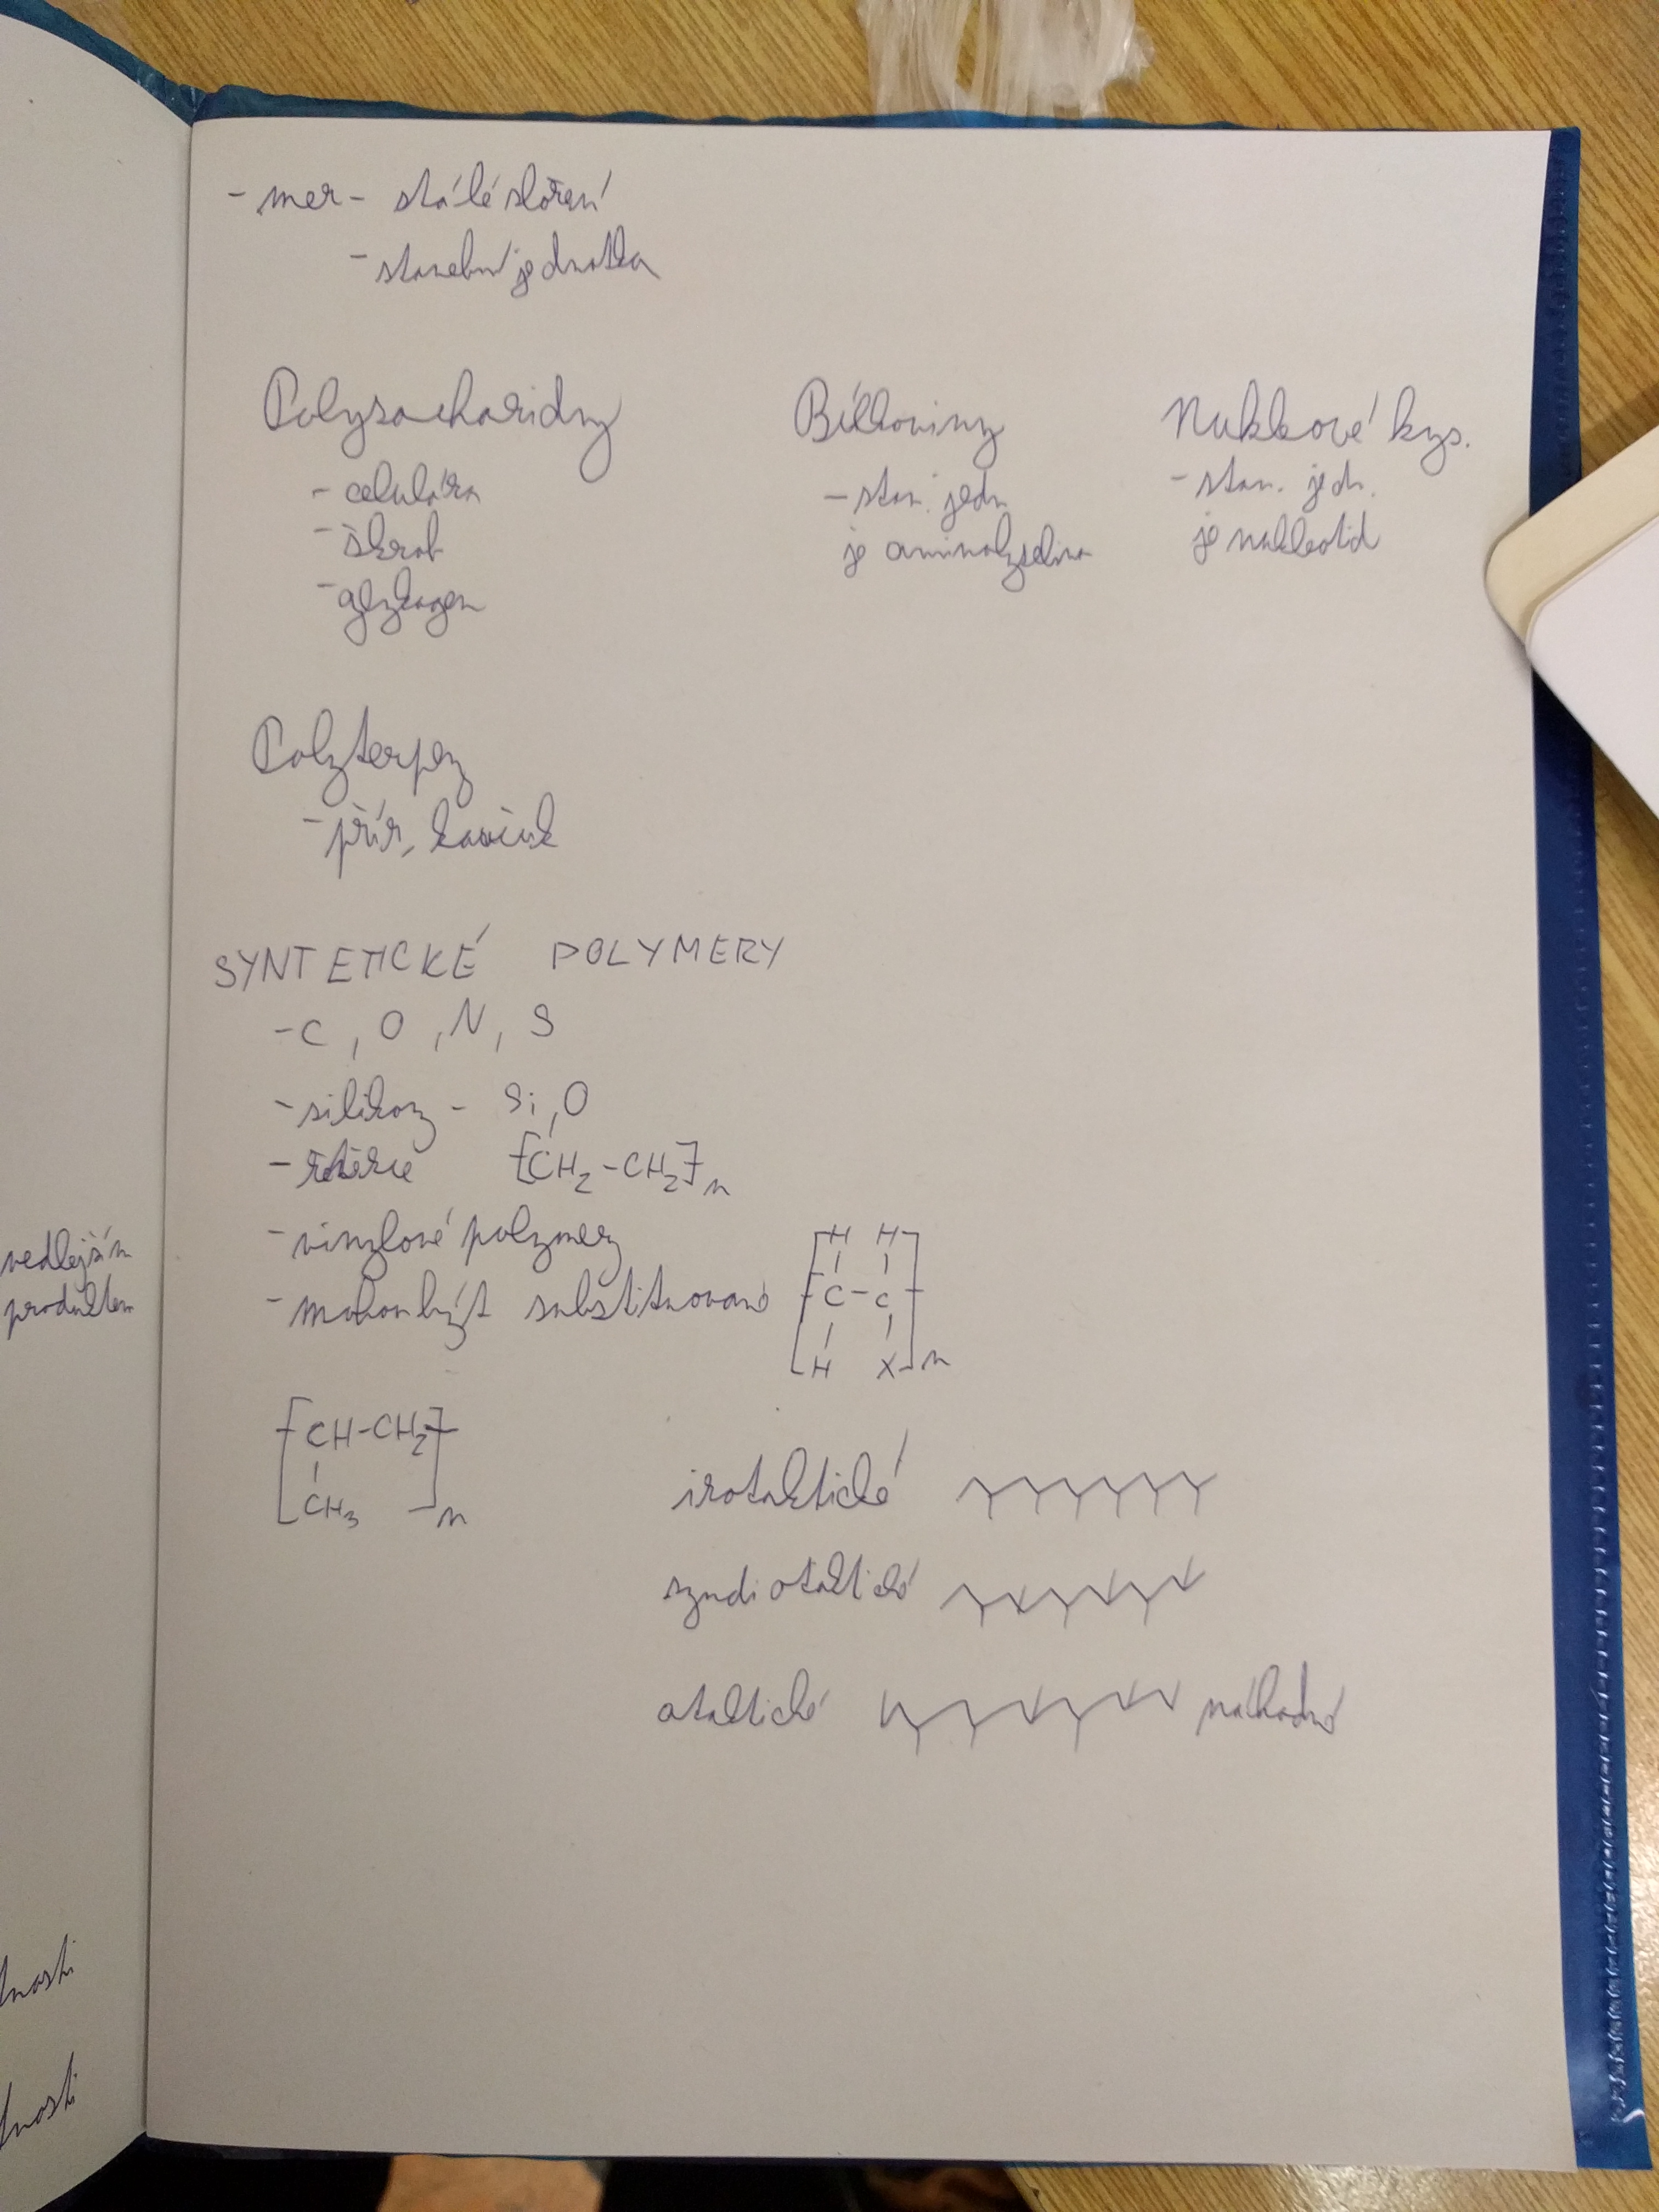 - mer - stálé složení
- stavební jednotka
Polysacharidy
- celulóza
- škrob
- glykogen
Bílkoviny
- stav. jedn.
je aminokyselina
Nukleové kys.
- stav. jedn.
je nukleotid
Polyterpeny
- přír. kaučuk
SYNTETICKÉ POLYMERY
- C, O, N, S
- silikony - Si, O
- řetězce [CH2-CH2]n
- vinylové polymery
- mohou být substituované
H H
C - C
H X n
CH-CH2
CH3 n
izotaktické
syndiotaktické
ataktické náhodné
vedlejším
produktem